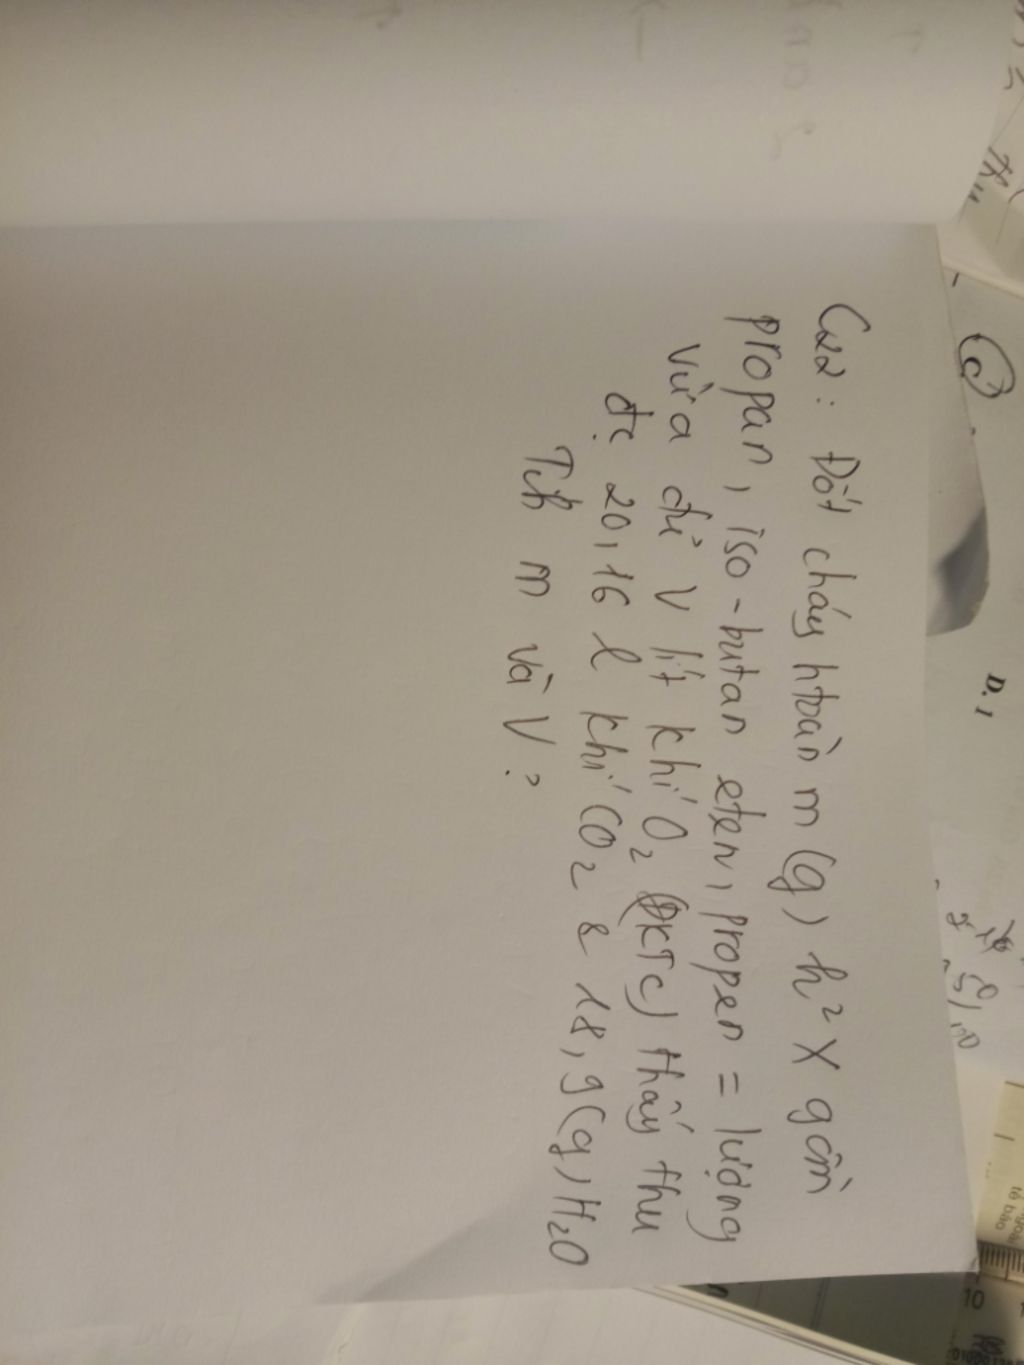 Câu 2: Đốt cháy htoàn m (g) h² X gồm
propan, iso-butan eten, propen = lượng
vừa đủ V lít khí O₂ (ĐKTC) thấy thu
đc 20,16 l khí CO₂ & 18,9(g) H₂O
Tính m và V?
C
D. 1
10